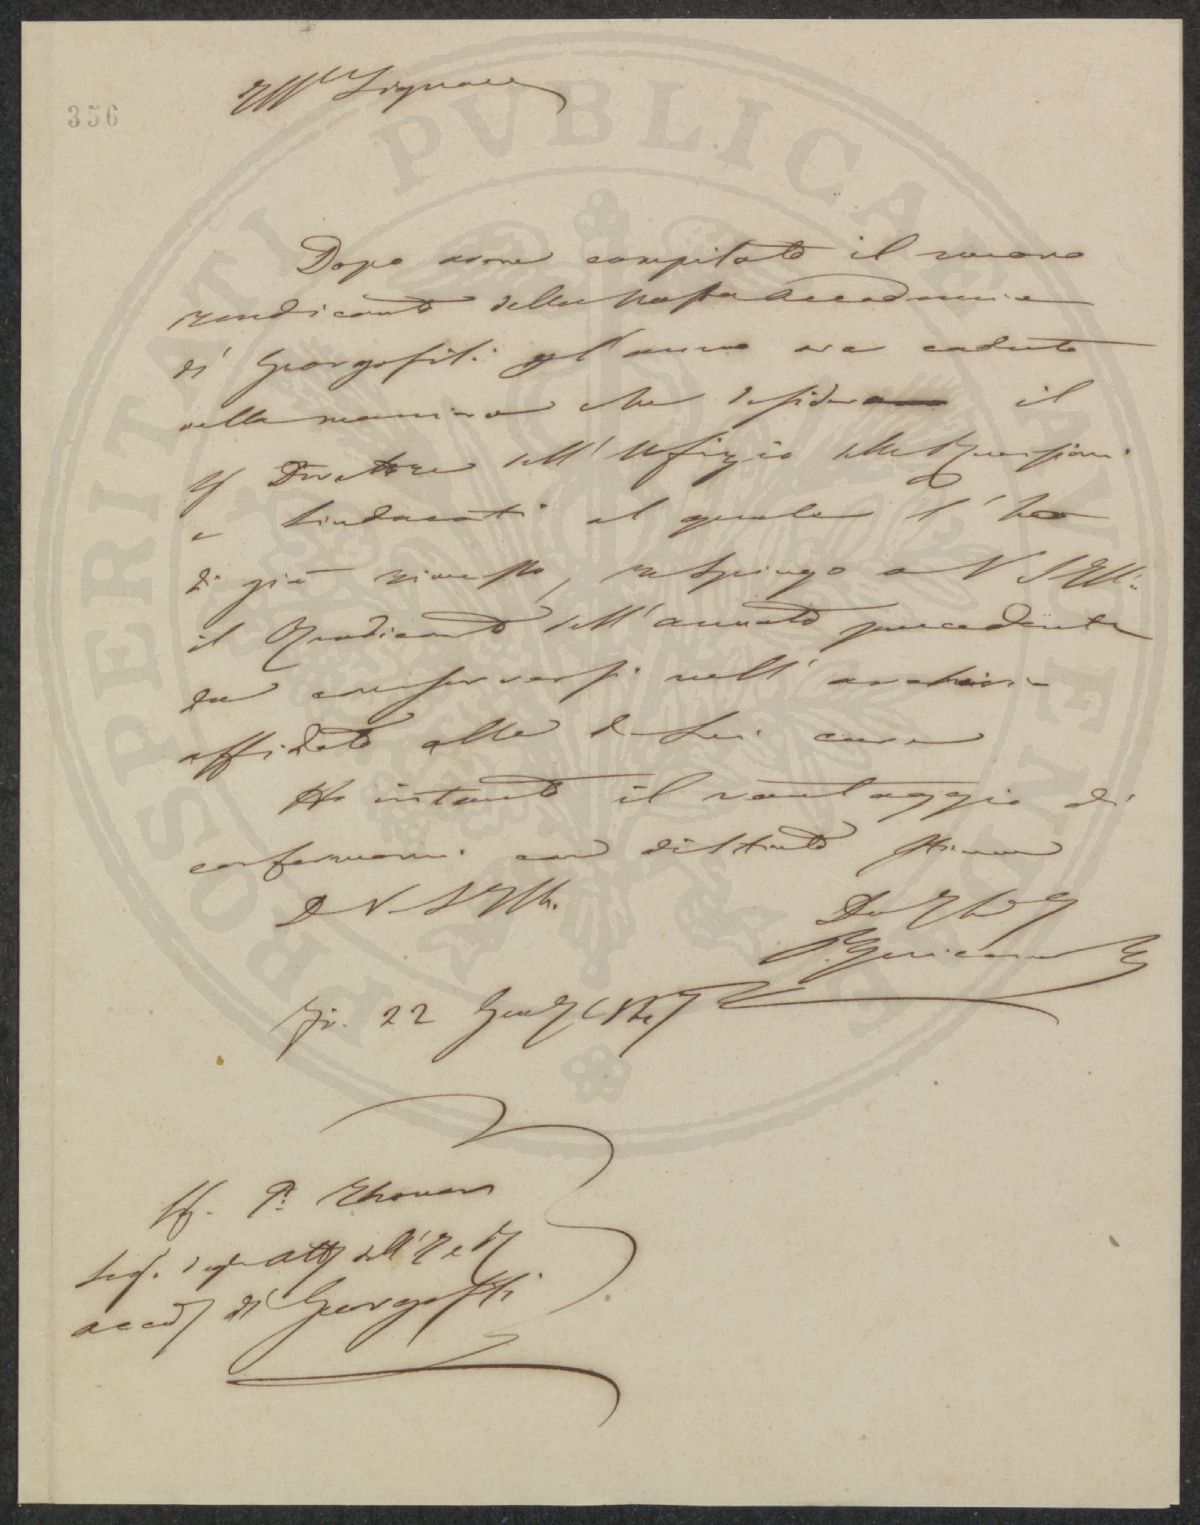 356
Illmo Signore
Dopo avere compilato il nuovo
rendiconto della nostra Accademia
di Georgofili per l'anno ora caduto
nella maniera che desidera il
Direttore dell'Ufizio delle Revisioni
e Sindacati al quale l'ho
di già rimesso, respingo a V. S. Illma
il Rendiconto dell'annata precedente
da conservarsi nell'archivio
affidato alle di Lei cure
Ho intanto il vantaggio di
confermarmi con distinta stima
D V. S. Illma
22
Segr. degli Atti dell'I e R
Accad di Georgofili
PROSPERITATI PVBLICAE AVGENDAE